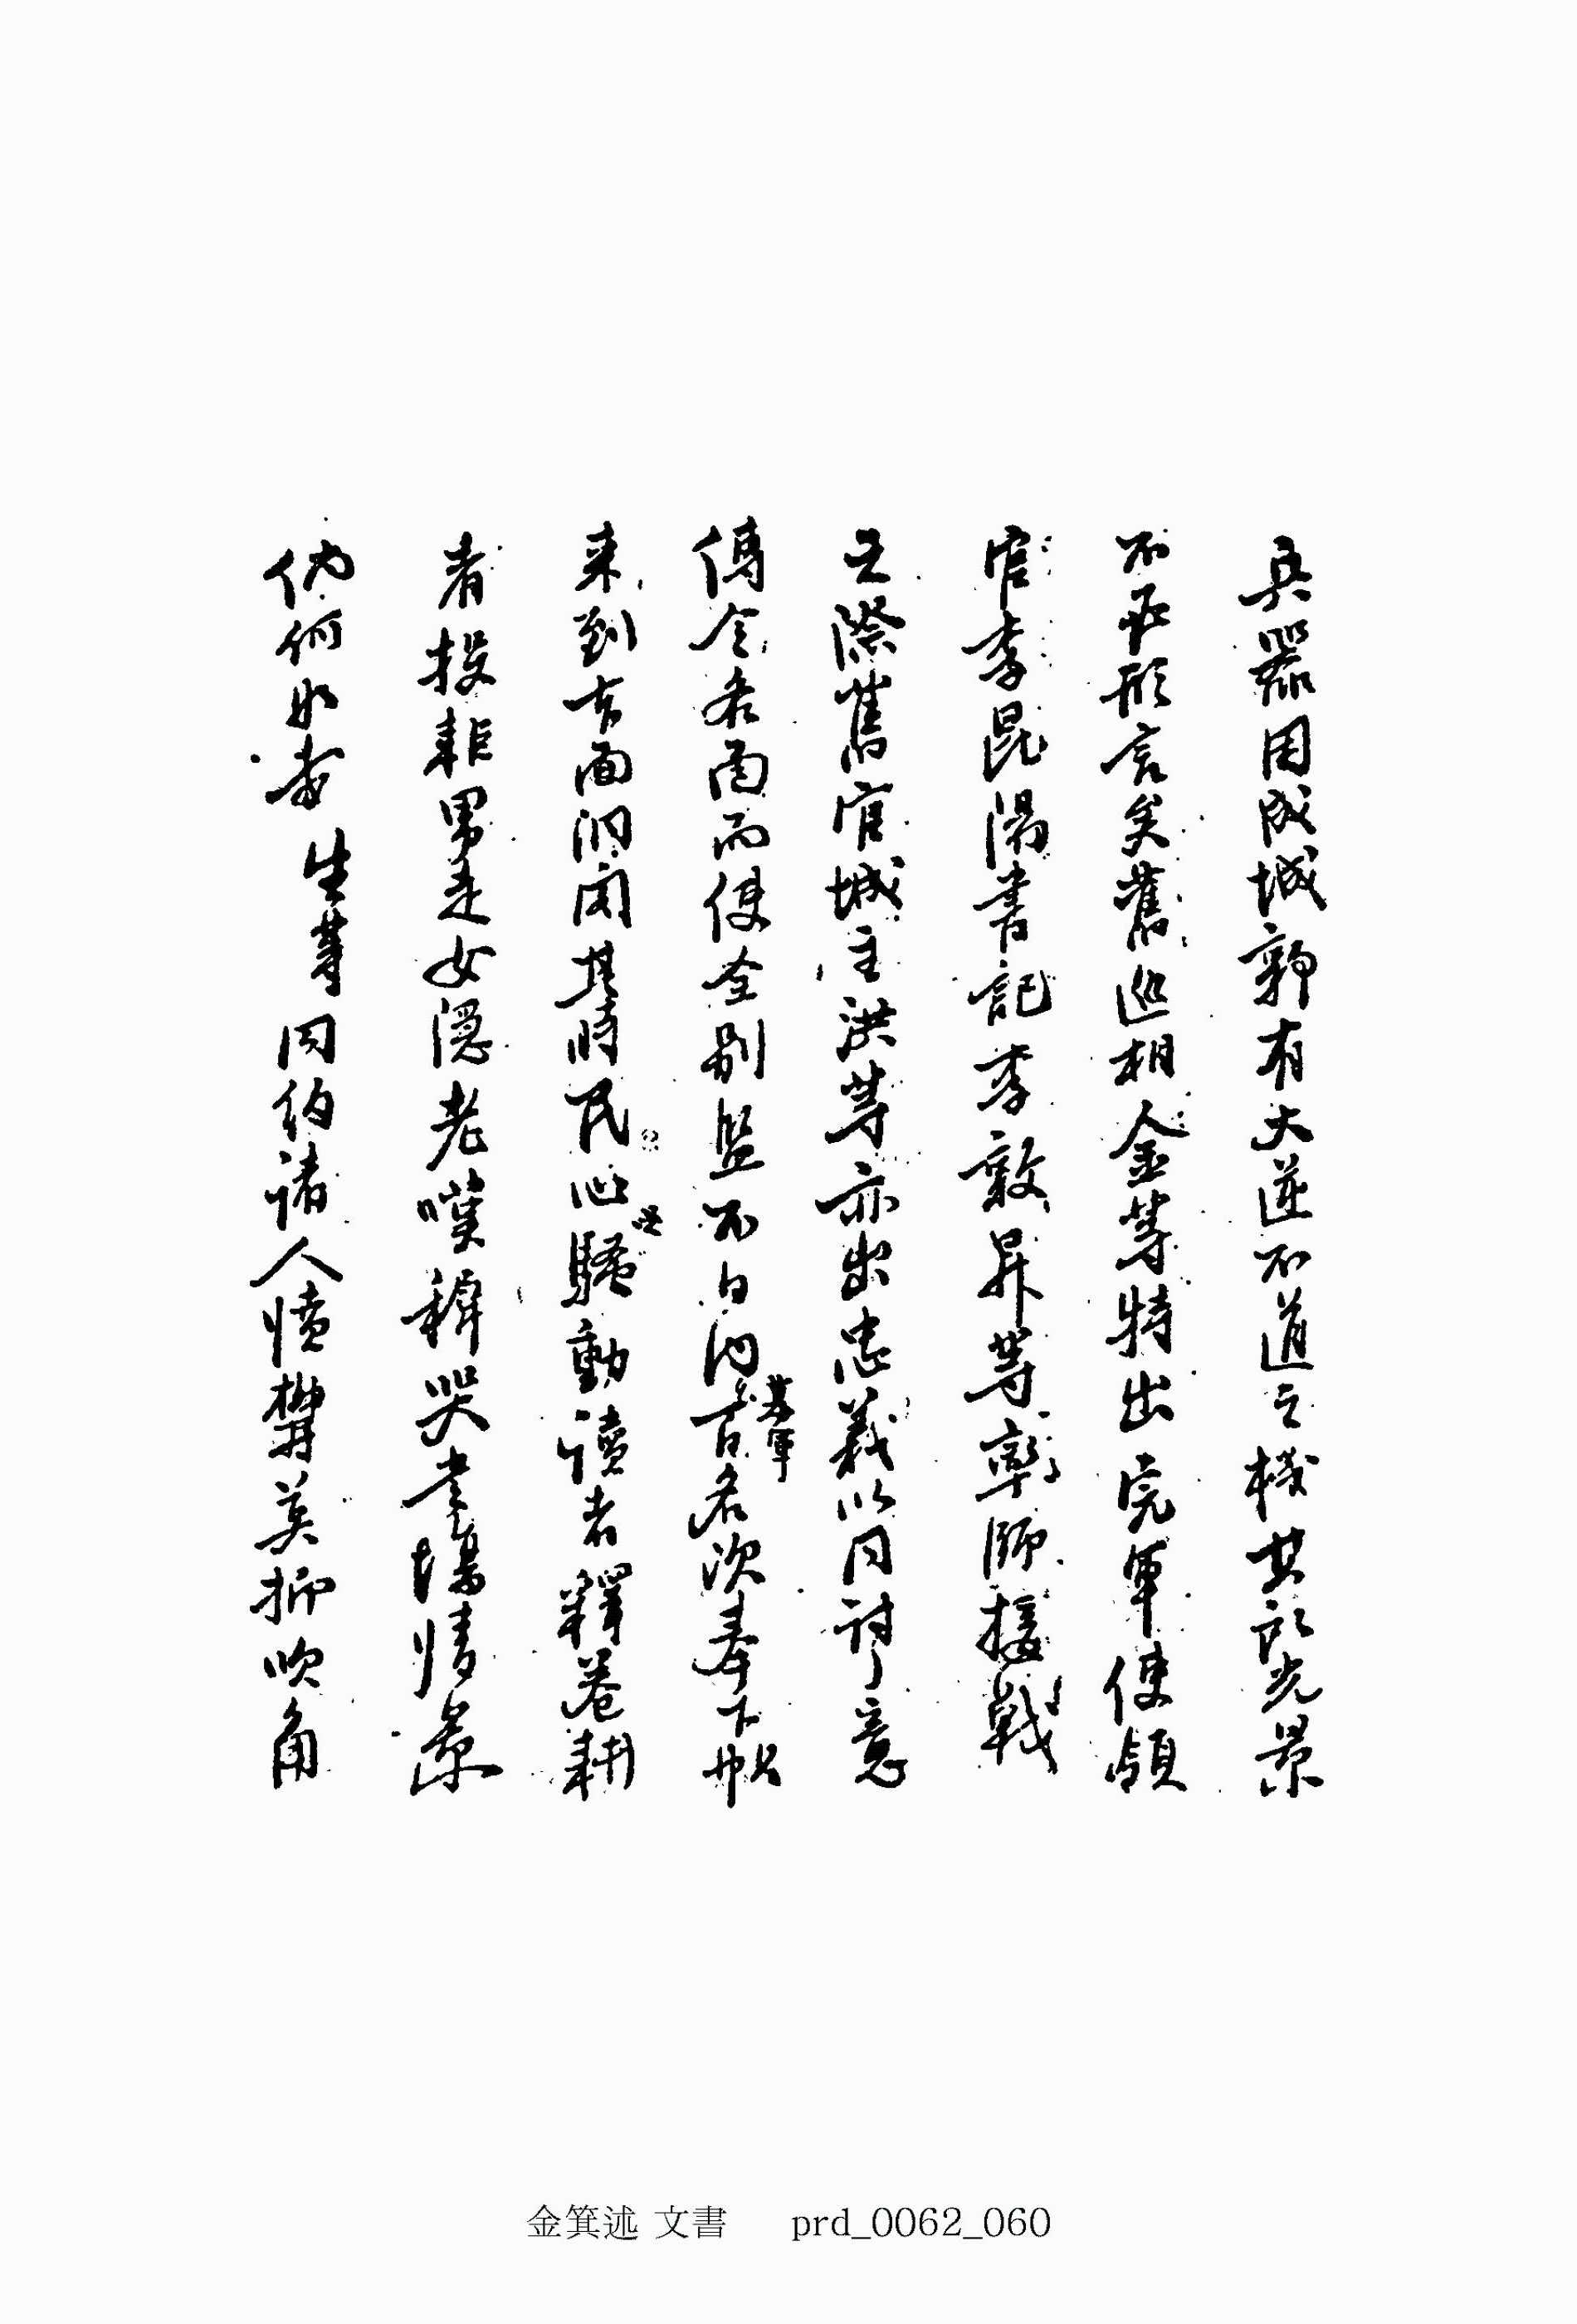 兵器用成城郭有大逆不道之機其所光景
不可形言矣舊巡相金等特出完軍使領
官李昆陽書記李敦昇等率師接戰
之際舊官城主洪等亦出忠義以同討意
傳令各面而使全別監不日內募軍百名次奉下帖
来到古面洞閭其時民心騷動讀者釋卷耕
者投耒男走女隱老嘆稚哭當場情景
何如哉生等同約諸人憤鬱莫抑吹角